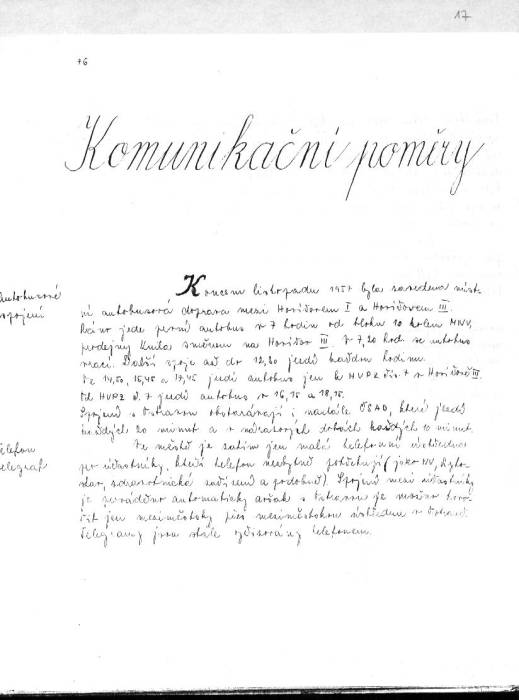 17
76
Komunikační poměry
Autobusové
spojení
Koncem listopadu 1957 byla zavedena míst-
ní autobusová doprava mezi Havířovem I a Havířovem III.
jede první autobus v 7 hodin od bloku 10 kolem MNV,
prodejny Kniha směrem na Havířov III. V 7,20 hod. se autobus
vrací. Další spoje až do 12,20 jezdí každou hodinu.
Ve 14,50, 15,45 a 17,45 jezdí autobus jen k HVPZ čís. 7 v Havířově III.
Od HVPZ č. 7 jezdí autobus v 16,15 a 18,15.
Spojení s Ostravou obstarávají i nadále ČSAD, které jezdí
každých 20 minut a v nárazových dobách každých 10 minut.
Telefon
telegraf
Ve městě je zatím jen malá telefonní ústředna
pro účastníky, kteří telefon nezbytně potřebují (jako NV,
zdravotnická zařízení a podobně). Spojení mezi účastníky
je prováděno automaticky avšak s Ostravou je možno hovo-
řit jen meziměstsky přes meziměstskou ústřednu v Ostravě.
Telegramy jsou stále vyřizovány telefonem.